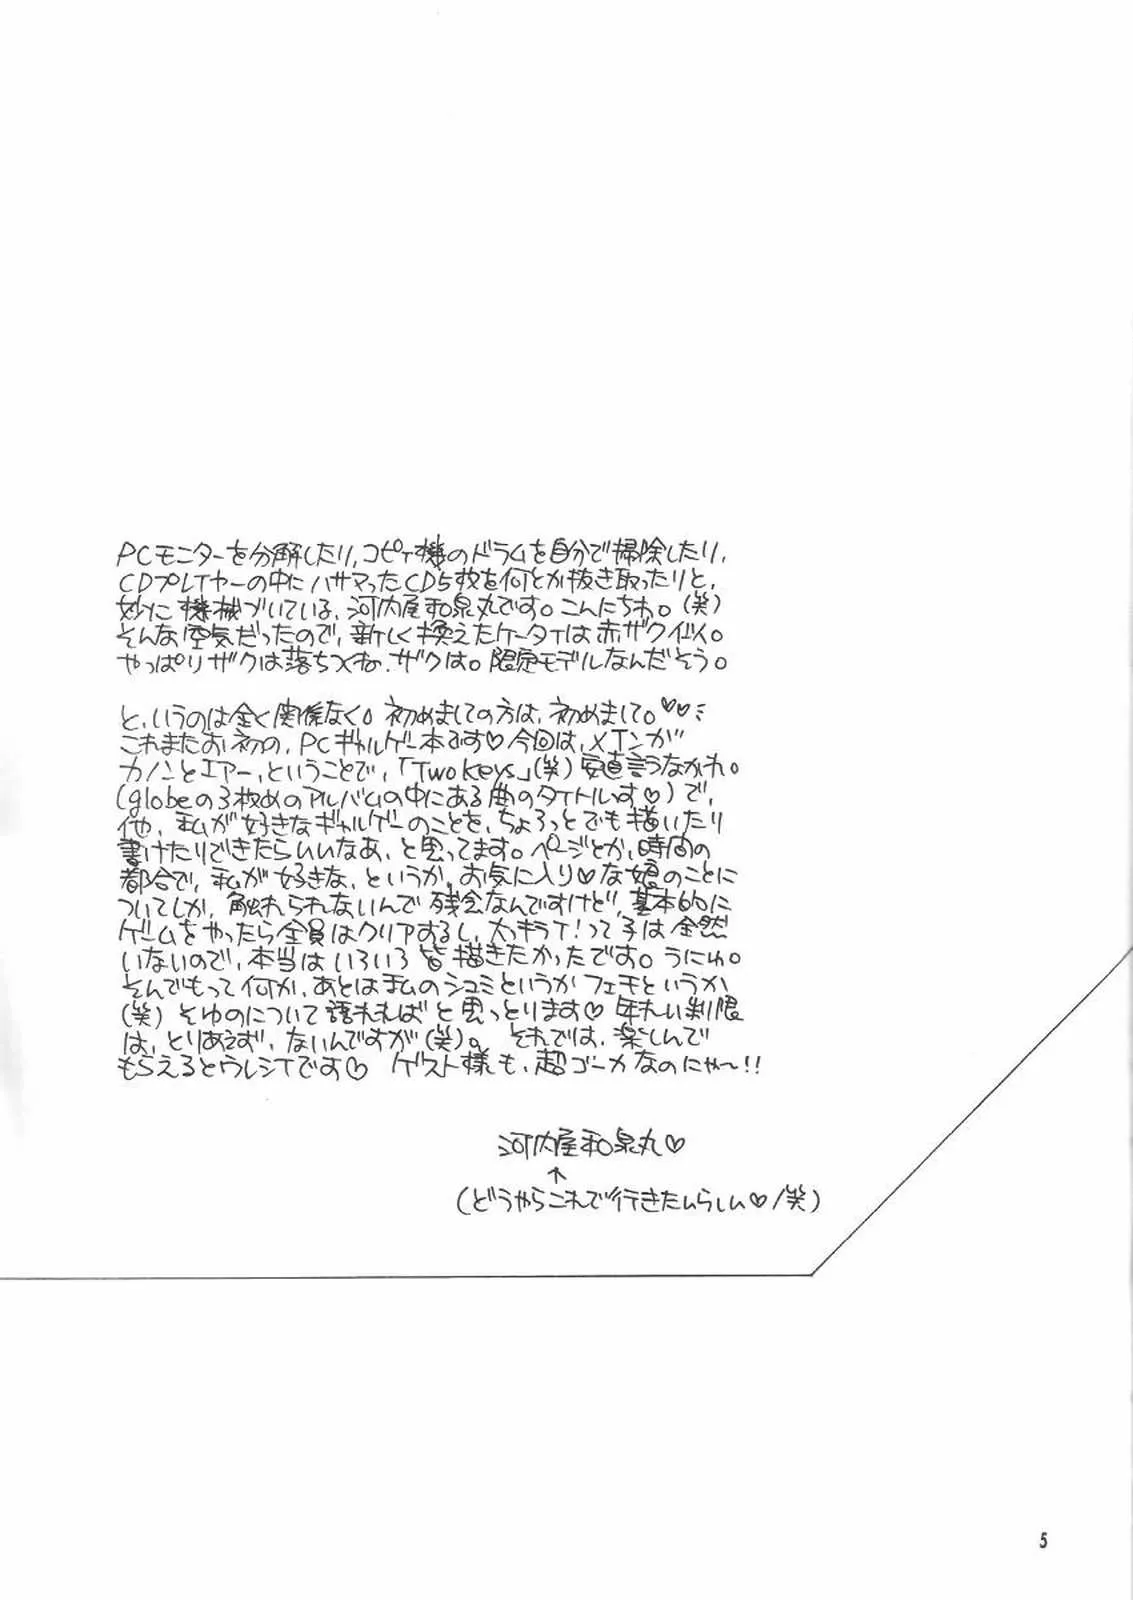 PCモニターを分解したり、コピー機のドラムを自分で掃除したり、
CDプレイヤーの中にハサマったCD5枚を何とか抜き取ったりと、
妙に機械づいている、河内屋和泉丸です。こんにちわ。(笑)
そんな空気だったので、新しく換えたケータイは赤ザク
やっぱりザクは落ちつくね、ザクは。限定モデルなんだそう。
と、いうのは全く関係なく。初めましての方は、初めまして。♡♡
これまたお初の、PCギャルゲー本です♡今回は、メインが
カノンとエアー、ということで、「Two Keys」(笑)安直言うなかれ。
(globeの3枚めのアルバムの中にある曲のタイトルっす♡)で、
他、私が好きなギャルゲーのことを、ちょろっとでも描いたり
書けたりできたらいいなあ、と思ってます。ページとか、時間の
都合で、私が好きな、というか、お気に入り♡な娘のことに
ついてしか、触れられないんで残念なんですけど、基本的に
ゲームをやったら全員はクリアするし、大っキライ!って子は全然
いないので、本当はいろいろ皆描きたかったです。うにゅ。
そんでもって何か、あとは私のシュミというかフェチというか
(笑)そゆのについて語れればと思っとります♡年れい制限
は、とりあえず、ないんですが(笑)。それでは、楽しんで
もらえるとウレシイです♡ ゲスト様も、超ゴーカなのにゃ〜!!
河内屋和泉丸♡
↑
(どうやらこれで行きたいらしい♡/笑)
5